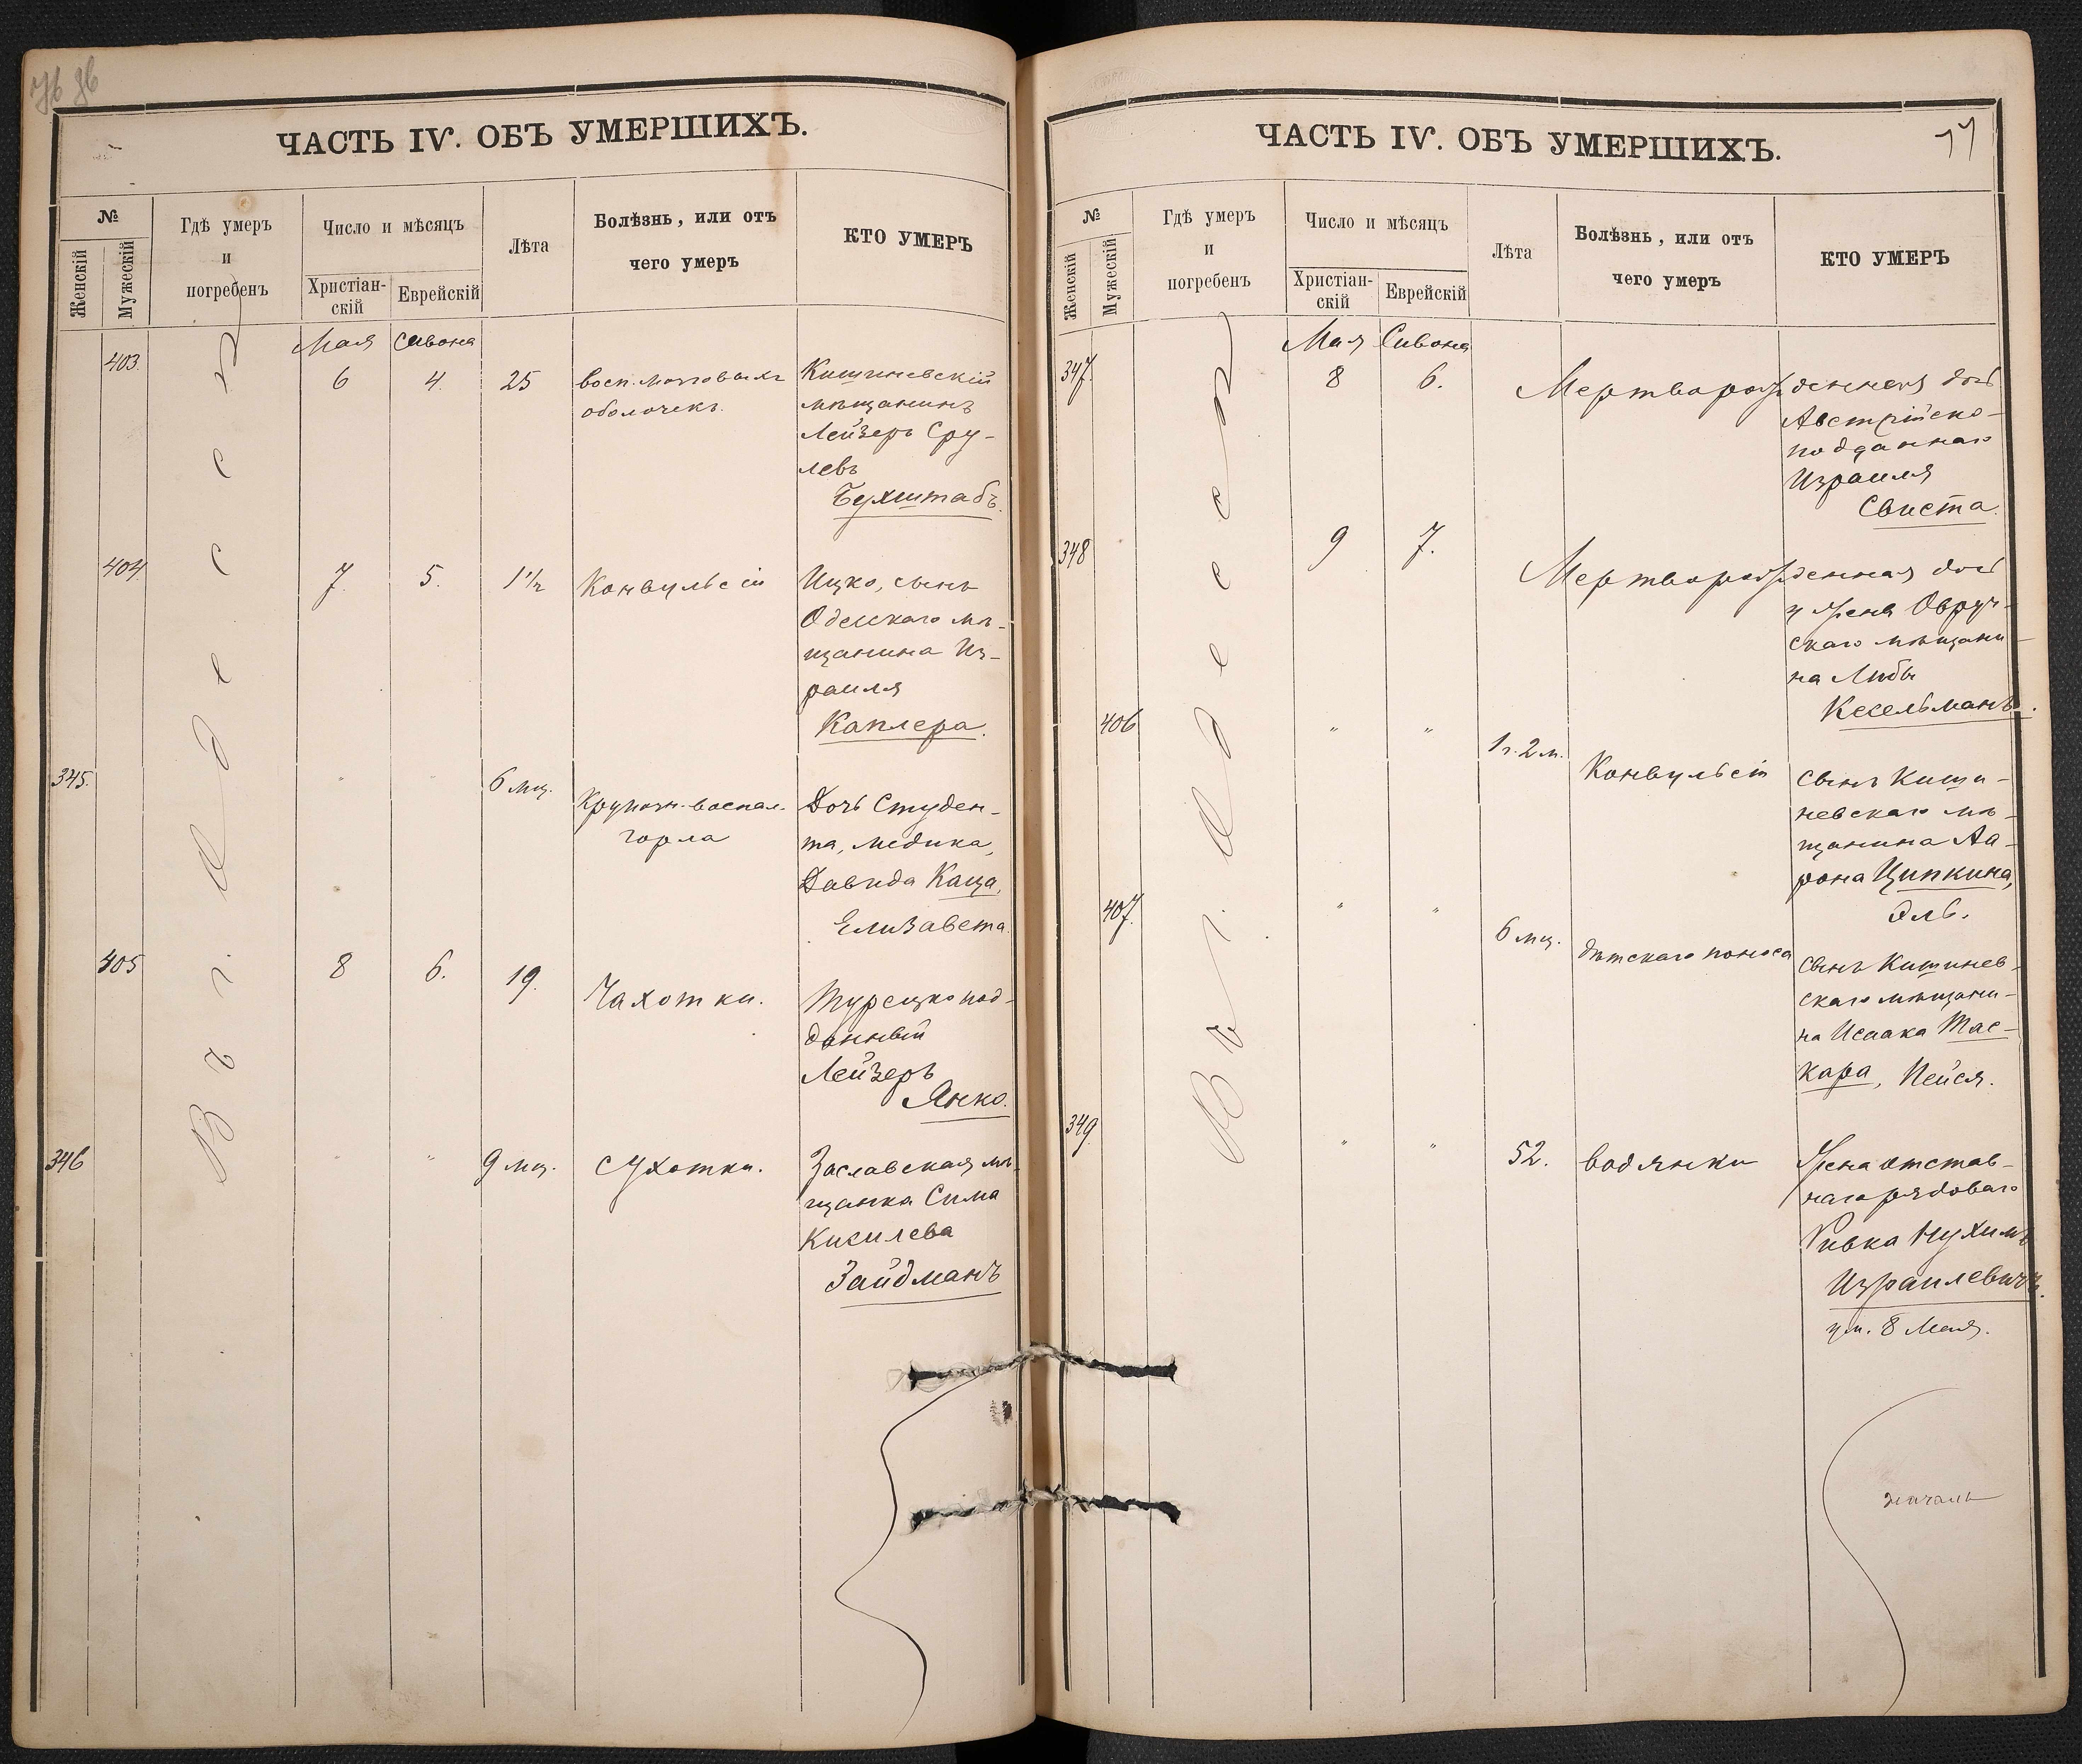 ЧАСТЬ IV. ОБЪ УМЕРШИХЪ.
№
Женскій
Мужескій
Гдѣ умеръ
и
погребенъ
Число и мѣсяцъ
Христіан-
скій
Еврейскій
Лѣта
Болѣзнь, или отъ
чего умеръ
КТО УМЕРЪ
Въ г. Одессѣ
Мая Сивона
403. 6 4. 25 восп. мозговыхъ
оболочекъ.
Кишиневскій
мѣщанинъ
Лейзеръ Сру-
левъ
Бухштабъ.
404 7. 5. 1 1/2 Конвульсіи
Ицко, сынъ
Одесскаго мѣ-
щанина Из-
раиля
Каплера.
345. " " 6 мц. Крупозн. воспал.
горла
Дочь Студен-
та, медика,
Давида Каца,
Елизавета.
405 8 6. 19. Чахотки.
Турецко под-
данный
Лейзеръ
Янко.
346 " " 9 мц. Сухотки.
Заславская мѣ-
щанка Сима
Кисилева
Зайдманъ
ЧАСТЬ IV. ОБЪ УМЕРШИХЪ.
77
№
Женскій
Мужескій
Гдѣ умеръ
и
погребенъ
Число и мѣсяцъ
Христіан-
скій
Еврейскій
Лѣта
Болѣзнь, или отъ
чего умеръ
КТО УМЕРЪ
Въ г. Одессѣ
Мая Сивона
347. 8 6. Мертворожденная дочь
Австрійско-
подданнаго
Израиля
Свиста.
348 9 7. Мертворожденная дочь
у жены Овруч-
скаго мѣщани-
на Либы
Кесельманъ.
406 " " 1 г. 2 м. Конвульсіи
сынъ Киши-
невскаго мѣ-
щанина Аа-
рона Ципкина,
Эль.
407. " " 6 мц. дѣтскаго поноса
сынъ Кишинев-
скаго мѣщани-
на Исаака Тас-
кара, Пейся.
349. " " 52. водянки
Жена отстав-
наго рядоваго
Ривка Нухимъ
Израилевичъ.
ум. 8 Мая.